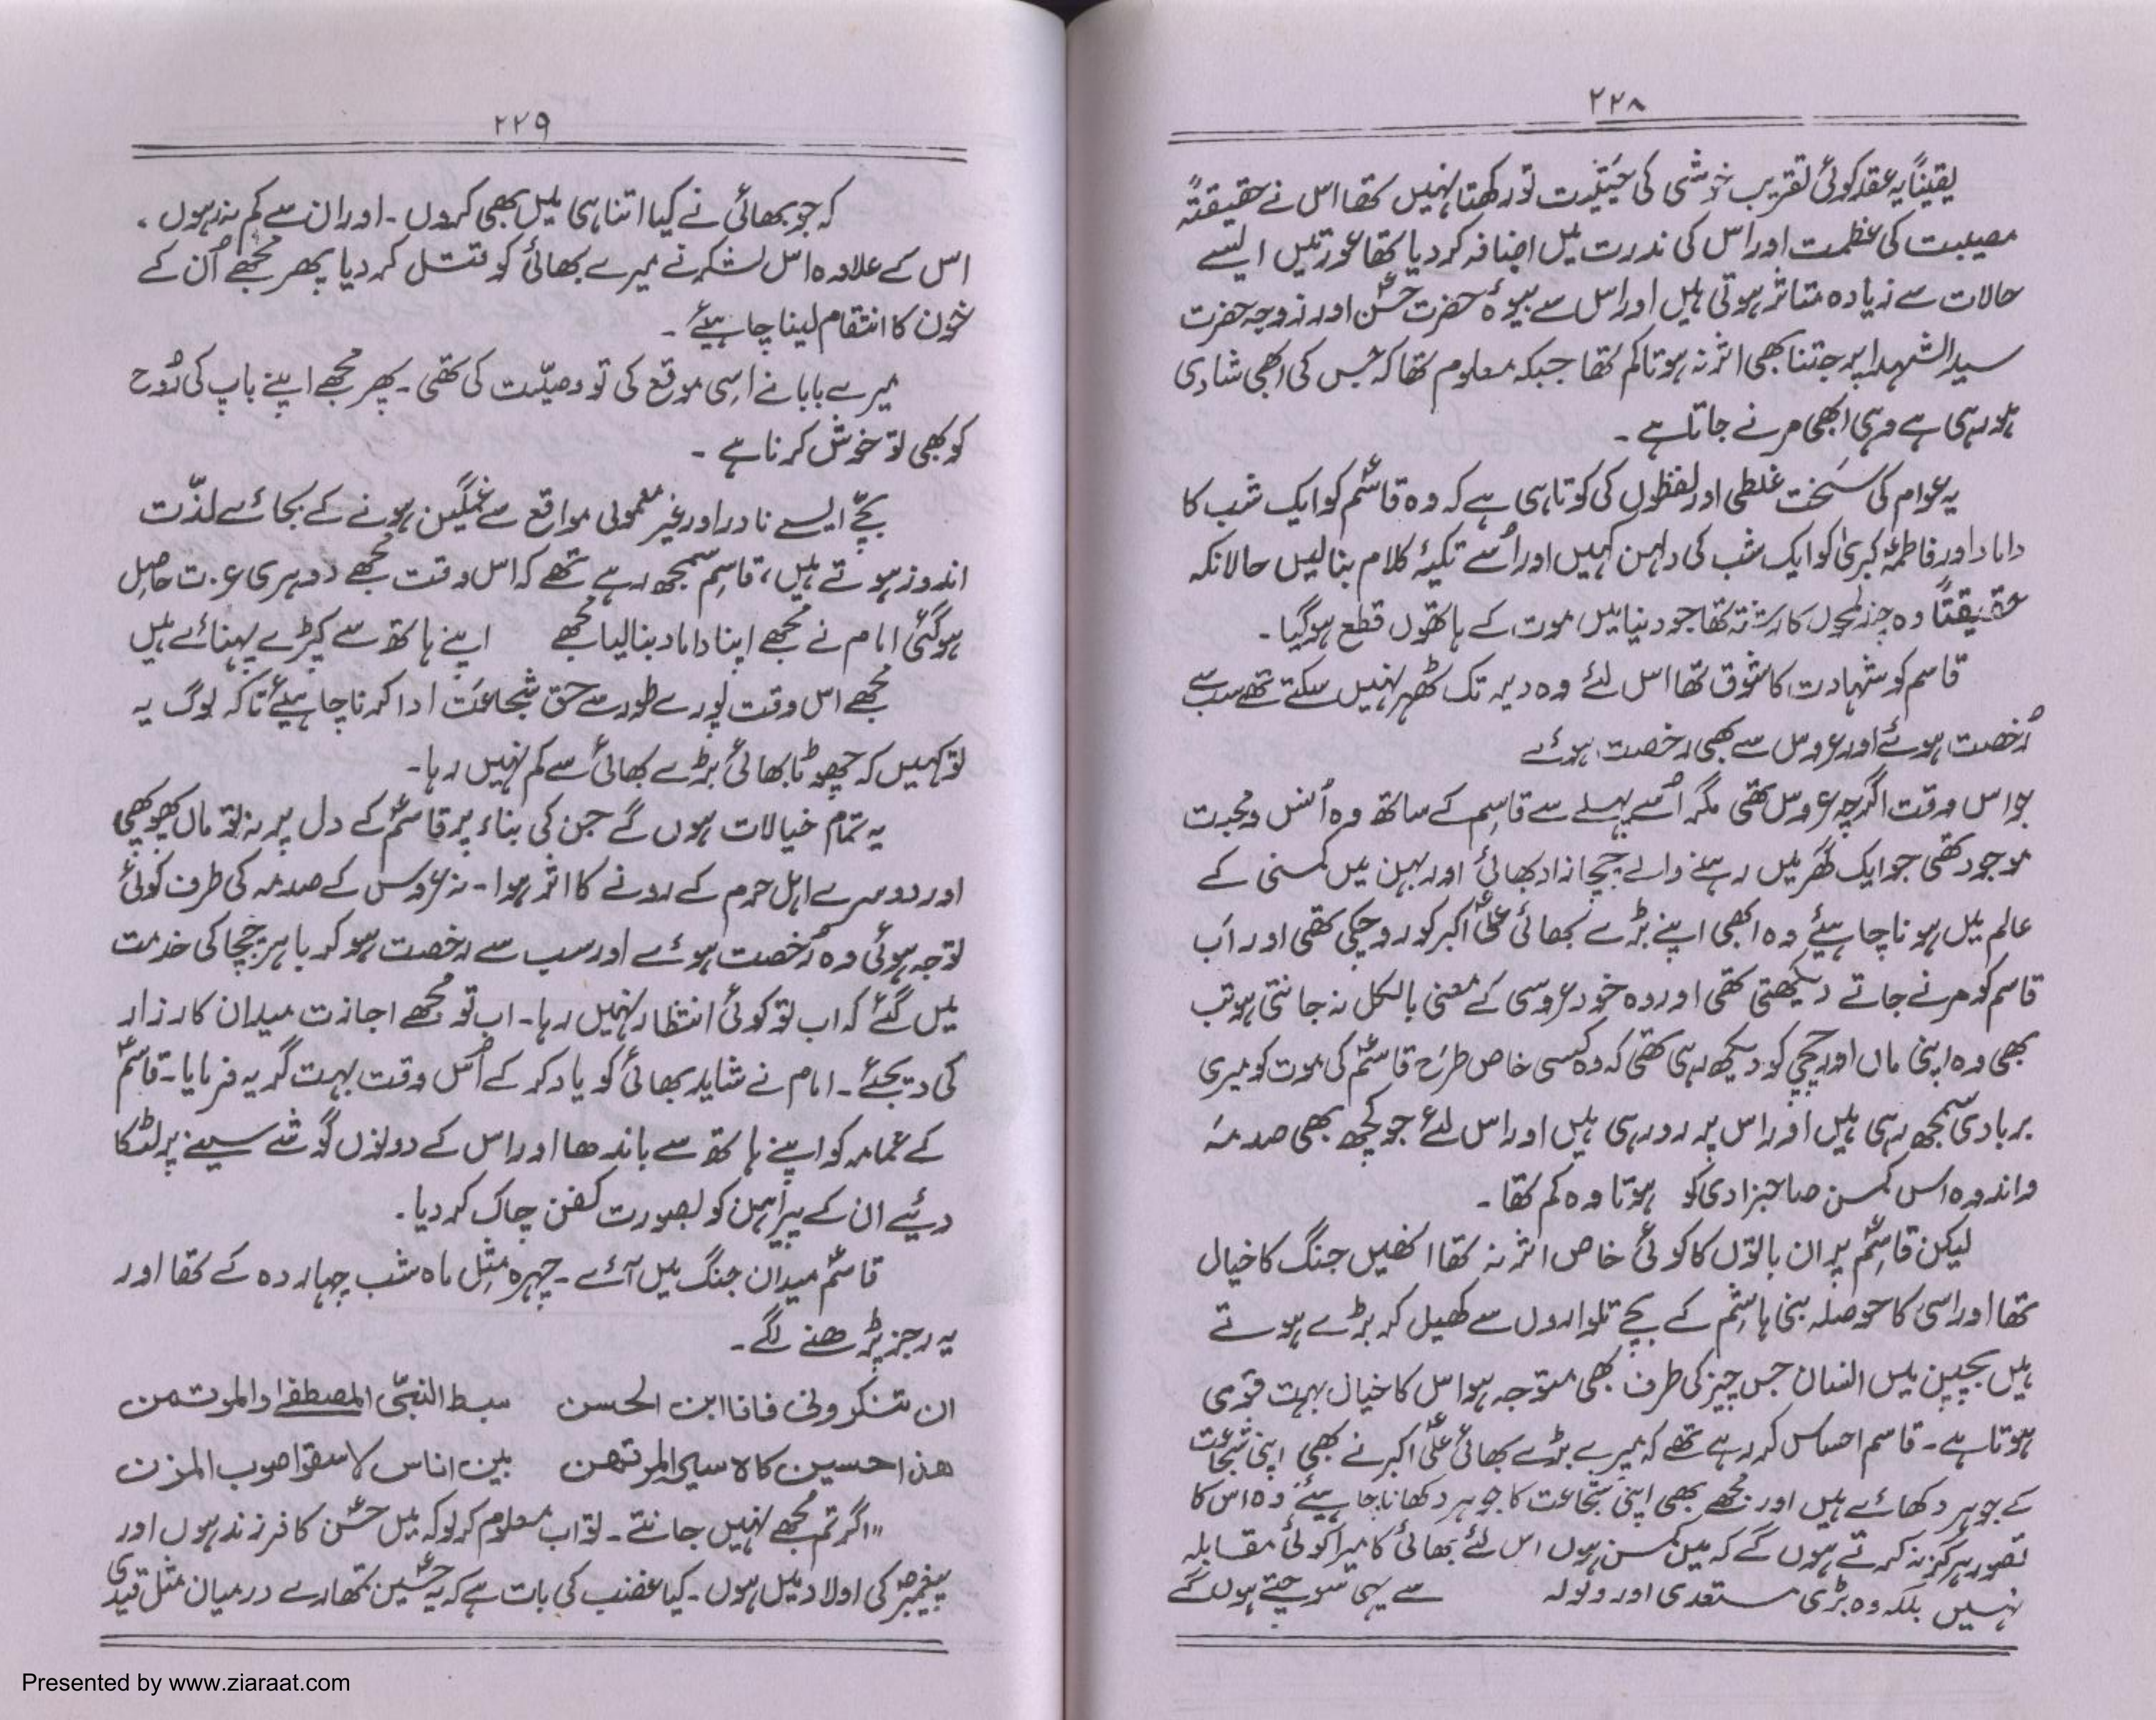 ۲۲۸
یقیناً یہ عقد کوئی تقریب خوشی کی حیثیت تو رکھتا نہیں تھا اس نے حقیقتہً
مصیبت کی عظمت اور اس کی ندرت میں اضافہ کر دیا تھا عورتیں ایسے
حالات سے زیادہ متاثر ہوتی ہیں اور اس سے بیوۂ حضرت حسنؑ اور زوجہ حضرت
سید الشہدا پر جتنا بھی اثر نہ ہوتا کم تھا جبکہ معلوم تھا کہ جس کی ابھی شادی
ہو رہی ہے وہی ابھی مرنے جاتا ہے ۔
یہ عوام کی سخت غلطی اور لفظوں کی کوتاہی ہے کہ وہ قاسمؑ کو ایک شب کا
داماد اور فاطمہؑ کبریٰ کو ایک شب کی دلہن کہیں اور اُسے تکیۂ کلام بنا لیں حالانکہ
حقیقتاً وہ چند لمحوں کا رشتہ تھا جو دنیا میں موت کے ہاتھوں قطع ہو گیا ۔
قاسم کو شہادت کا شوق تھا اس لئے وہ دیر تک ٹھہر نہیں سکتے تھے سب سے
رُخصت ہوئے اور عروس سے بھی رخصت ہوئے
جو اس وقت اگرچہ عروس تھی مگر اُسے پہلے سے قاسم کے ساتھ وہ اُنس و محبت
موجود تھی جو ایک گھر میں رہنے والے چچا زاد بھائی اور بہن میں کمسنی کے
عالم میں ہونا چاہیئے وہ ابھی اپنے بڑے بھائی علیؑ اکبر کو رو چکی تھی اور اب
قاسم کو مرنے جاتے دیکھتی تھی اور وہ خود عروسی کے معنی بالکل نہ جانتی ہو تب
بھی وہ اپنی ماں اور چچی کو دیکھ رہی تھی کہ وہ کسی خاص طرح قاسمؑ کی موت کو میری
بربادی سمجھ رہی ہیں اور اس پر رو رہی ہیں اور اس لئے جو کچھ بھی صدمہ
و اندوہ اس کمسن صاحبزادی کو ہوتا وہ کم تھا ۔
لیکن قاسمؑ پر ان باتوں کا کوئی خاص اثر نہ تھا انھیں جنگ کا خیال
تھا اور اسی کا حوصلہ بنی ہاشم کے بچے تلواروں سے کھیل کر بڑے ہوتے
ہیں بچپن میں انسان جس چیز کی طرف بھی متوجہ ہو اس کا خیال بہت قوی
ہوتا ہے ۔ قاسم احساس کر رہے تھے کہ میرے بڑے بھائی علیؑ اکبر نے بھی اپنی شجاعت
کے جوہر دکھائے ہیں اور مجھے بھی اپنی شجاعت کا جوہر دکھانا چاہیئے وہ اس کا
تصور ہرگز نہ کرتے ہوں گے کہ میں کمسن ہوں اس لئے بھائی کا میرا کوئی مقابلہ
نہیں بلکہ وہ بڑی مستعدی اور ولولہ سے یہی سوچتے ہوں گے
۲۲۹
کہ جو بھائی نے کیا اتنا ہی میں بھی کروں ۔ اور ان سے کم نہ رہوں ۔
اس کے علاوہ اس لشکر نے میرے بھائی کو قتل کر دیا پھر مجھے اُن کے
خون کا انتقام لینا چاہیئے ۔
میرے بابا نے اسی موقع کی تو وصیّت کی تھی ۔ پھر مجھے اپنے باپ کی رُوح
کو بھی تو خوش کرنا ہے ۔
بچّے ایسے نادر اور غیر معمولی مواقع سے غمگین ہونے کے بجائے لذّت
اندوز ہوتے ہیں ، قاسم سمجھ رہے تھے کہ اس وقت مجھے دوہری عزت حاصل
ہو گئی امام نے مجھے اپنا داماد بنا لیا مجھے اپنے ہاتھ سے کپڑے پہنائے ہیں
مجھے اس وقت پورے طور سے حق شجاعت ادا کرنا چاہیئے تاکہ لوگ یہ
تو کہیں کہ چھوٹا بھائی بڑے بھائی سے کم نہیں رہا ۔
یہ تمام خیالات ہوں گے جن کی بناء پر قاسمؑ کے دل پر نہ تو ماں پھوپھی
اور دوسرے اہل حرم کے رونے کا اثر ہوا ۔ نہ عروس کے صدمہ کی طرف کوئی
توجہ ہوئی وہ رُخصت ہوئے اور سب سے رخصت ہو کر باہر چچا کی خدمت
میں گئے کہ اب تو کوئی انتظار نہیں رہا ۔ اب تو مجھے اجازت میدان کارزار
کی دیجئے ۔ امام نے شاید بھائی کو یاد کر کے اُس وقت بہت گریہ فرمایا ۔ قاسمؑ
کے عمامہ کو اپنے ہاتھ سے باندھا اور اس کے دونوں گوشے سینے پر لٹکا
دیئے ان کے پیراہن کو بصورت کفن چاک کر دیا ۔
قاسمؑ میدان جنگ میں آئے ۔ چہرہ مثل ماہ شب چہاردہ کے تھا اور
یہ رجز پڑھنے لگے ۔
ان تنکرونی فانا ابن الحسن سبط النبیّ المصطفےٰ والموتمن
ھذا حسین کالاسیر المرتھن بین اناس لا سقوا صوب المزن
"اگر تم مجھے نہیں جانتے ۔ تو اب معلوم کر لو کہ میں حسنؑ کا فرزند ہوں اور
پیغمبرؐ کی اولاد میں ہوں ۔ کیا غضب کی بات ہے کہ یہ حسینؑ تمھارے درمیان مثل قیدی
Presented by www.ziaraat.com